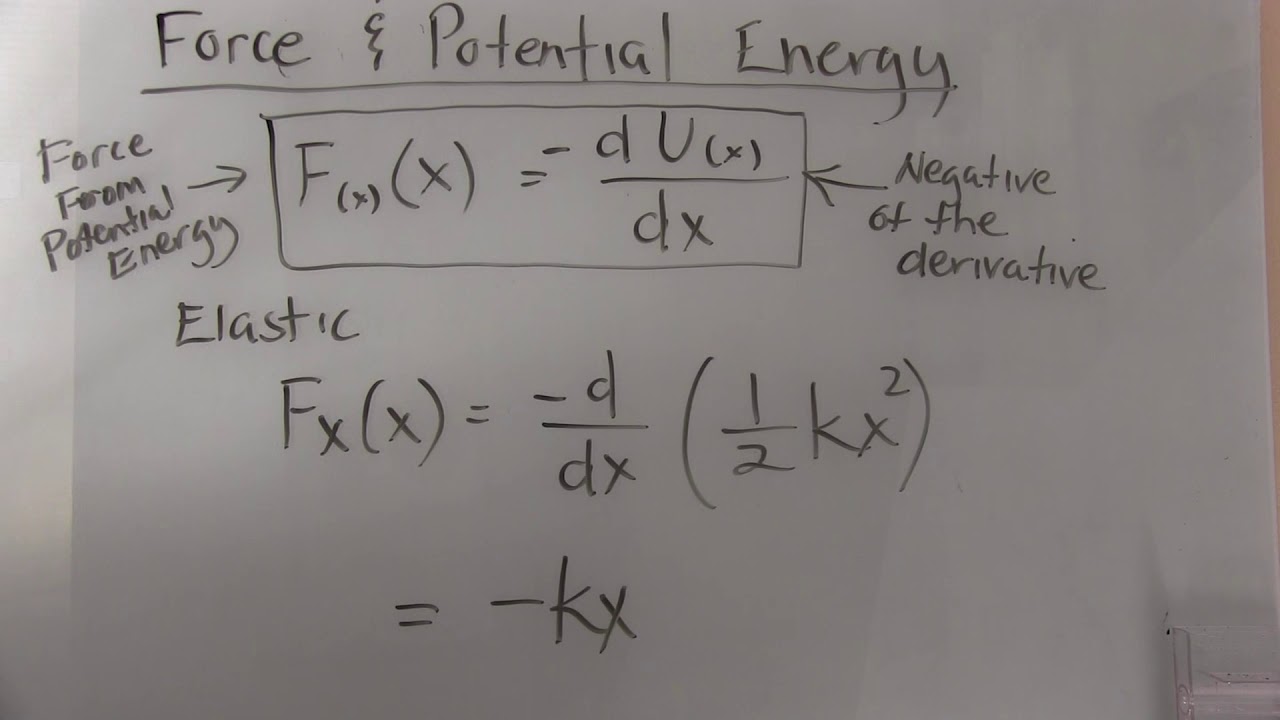 Force & Potential Energy
Force
From
Potential
Energy
→
F₍ₓ₎(x) = - dU(x)/dx
←
Negative
of the
derivative
Elastic
Fₓ(x) = -d/dx (1/2 kx²)
= -kx